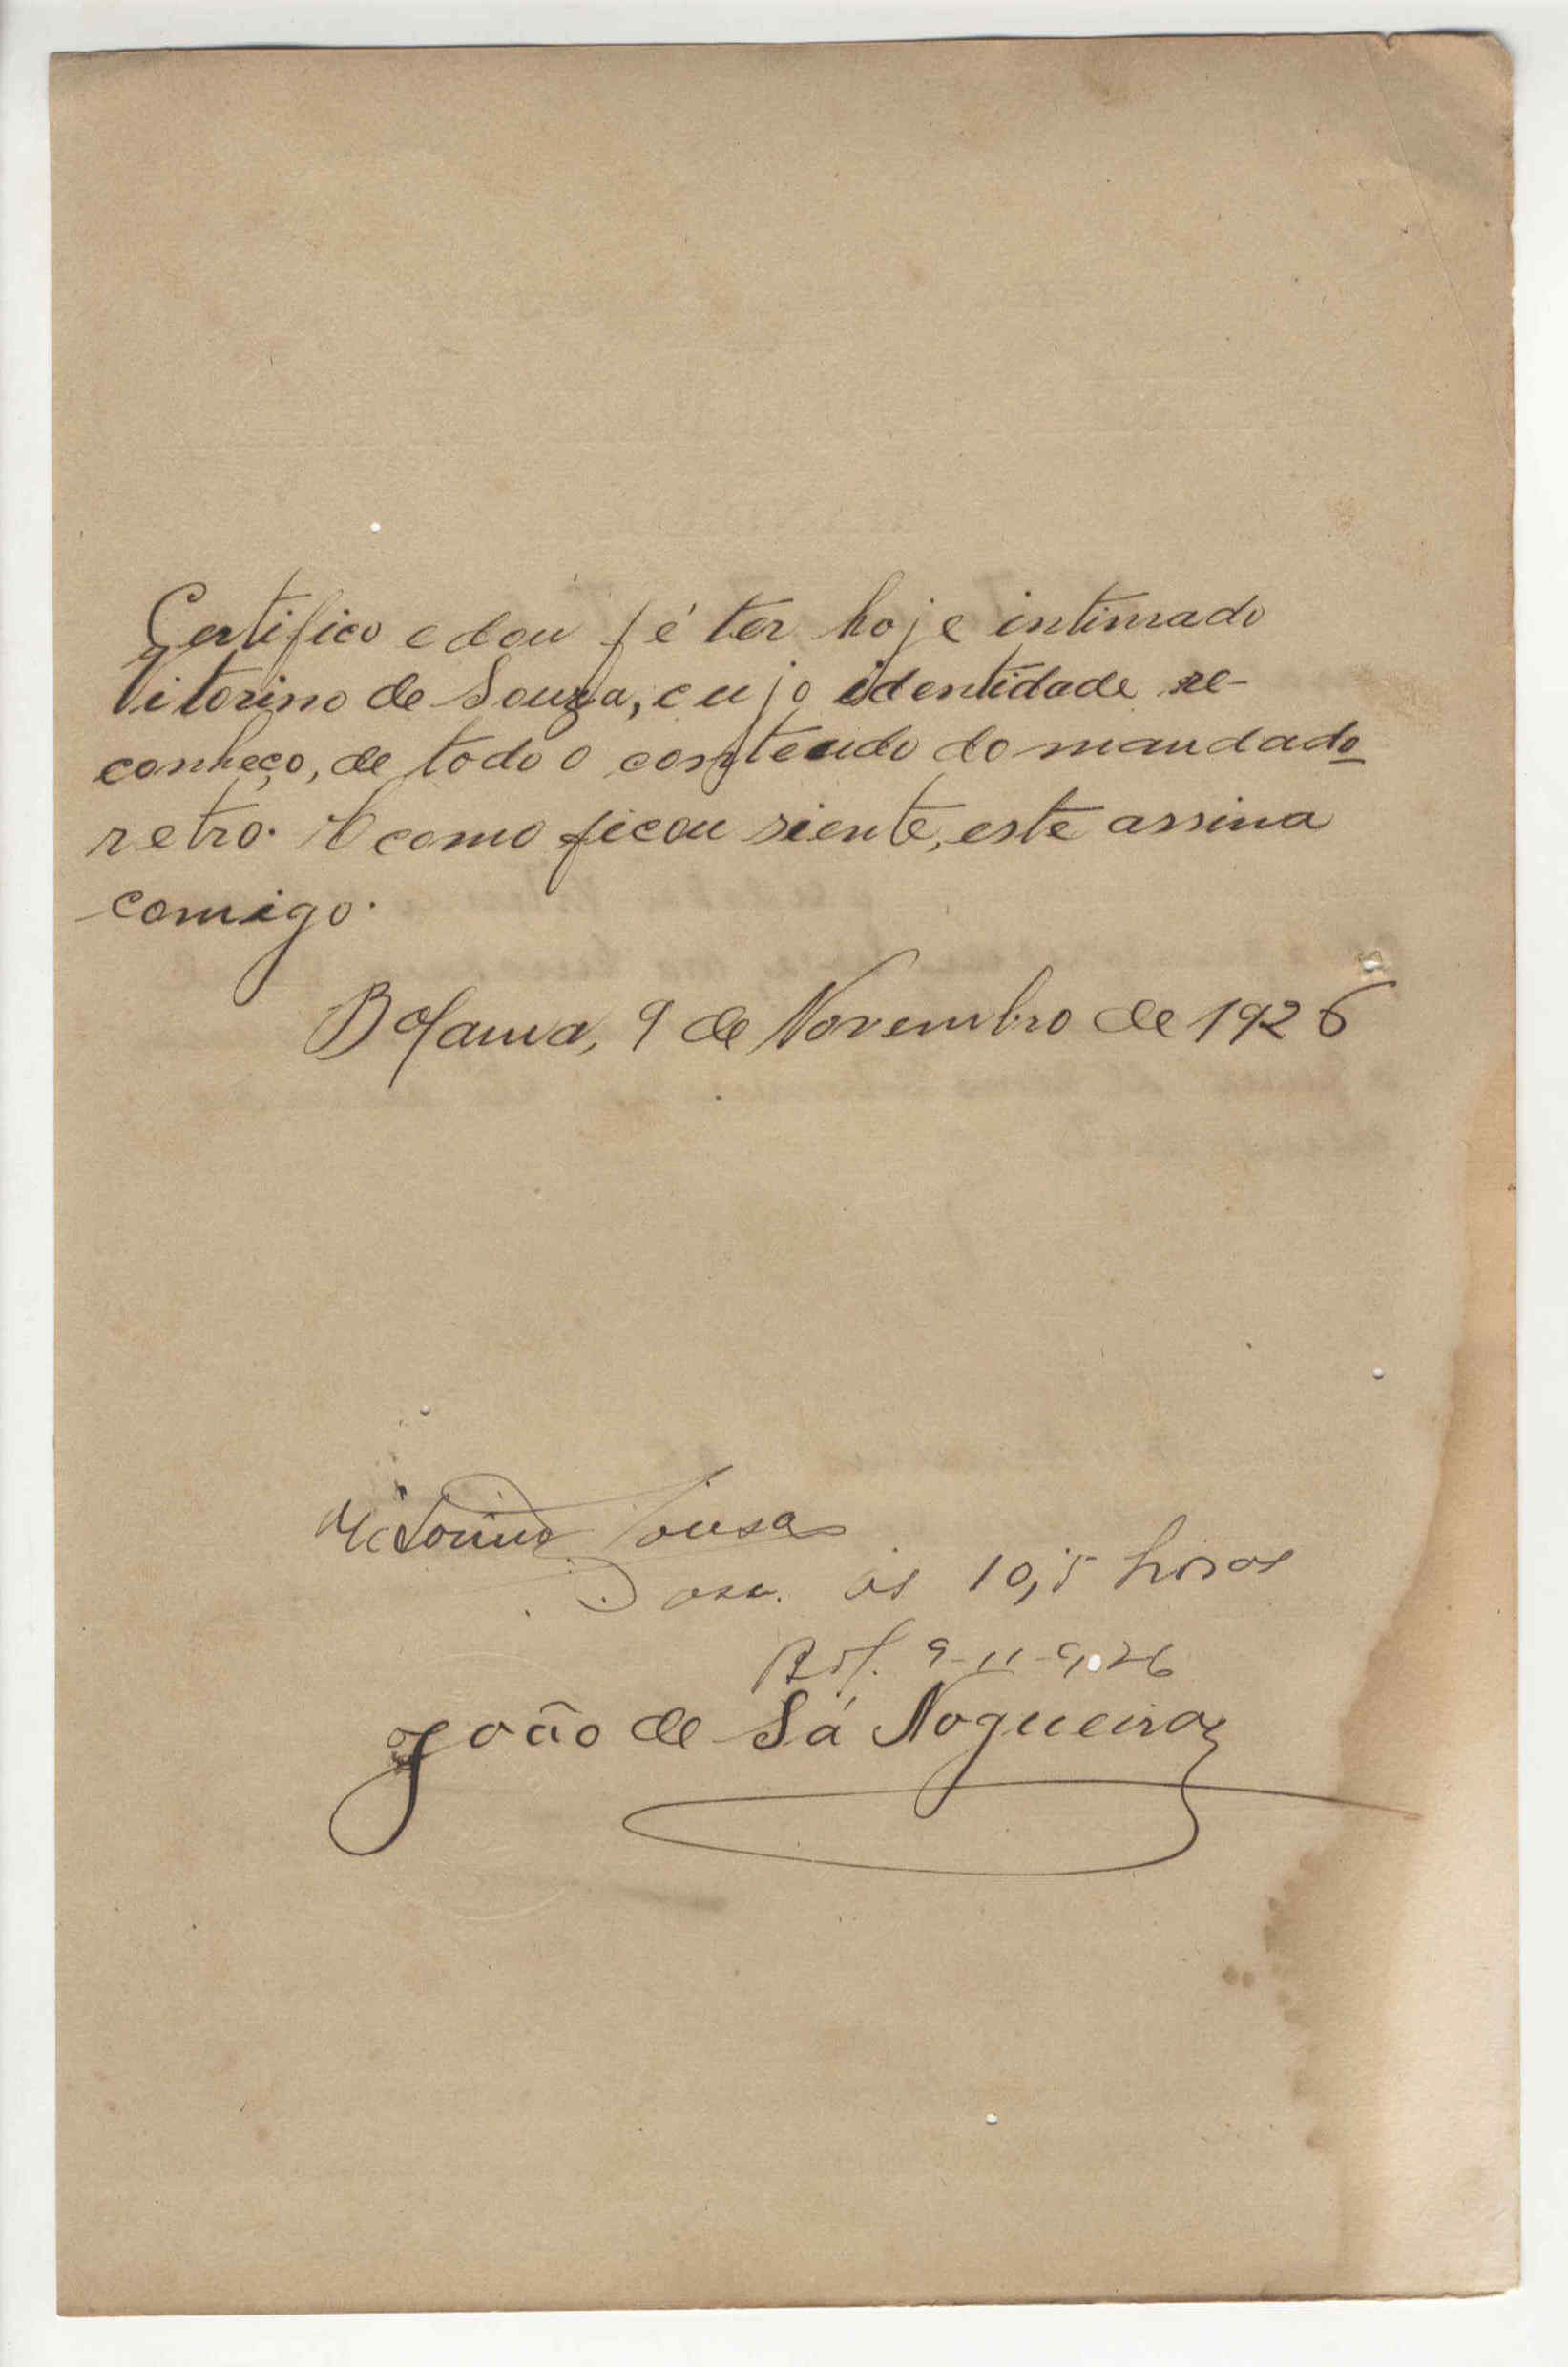 Certifico e dou fé ter hoje intimado
Vitorino de Souza, cujo identidade re-
conheço, de todo o conteudo do mandado
retro. E como ficou siente, este assina
comigo.
Bolama, 9 de Novembro de 1926
Victorino Sousa
às 10,5 horas
Bol. 9-11-926
João de Sá Nogueira